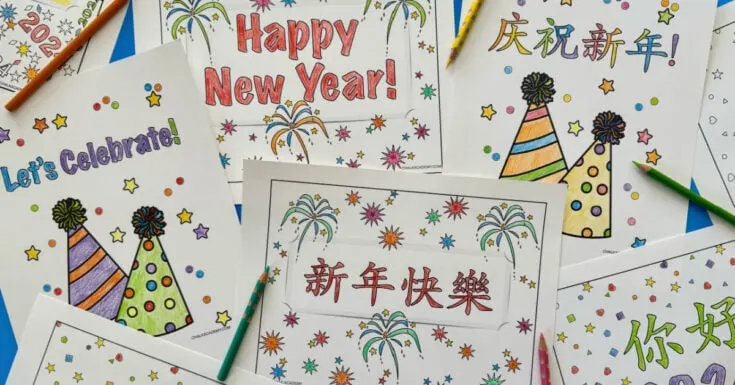 202
Happy
New Year!
慶祝新年!
Let's Celebrate!
新年快樂
你好
202